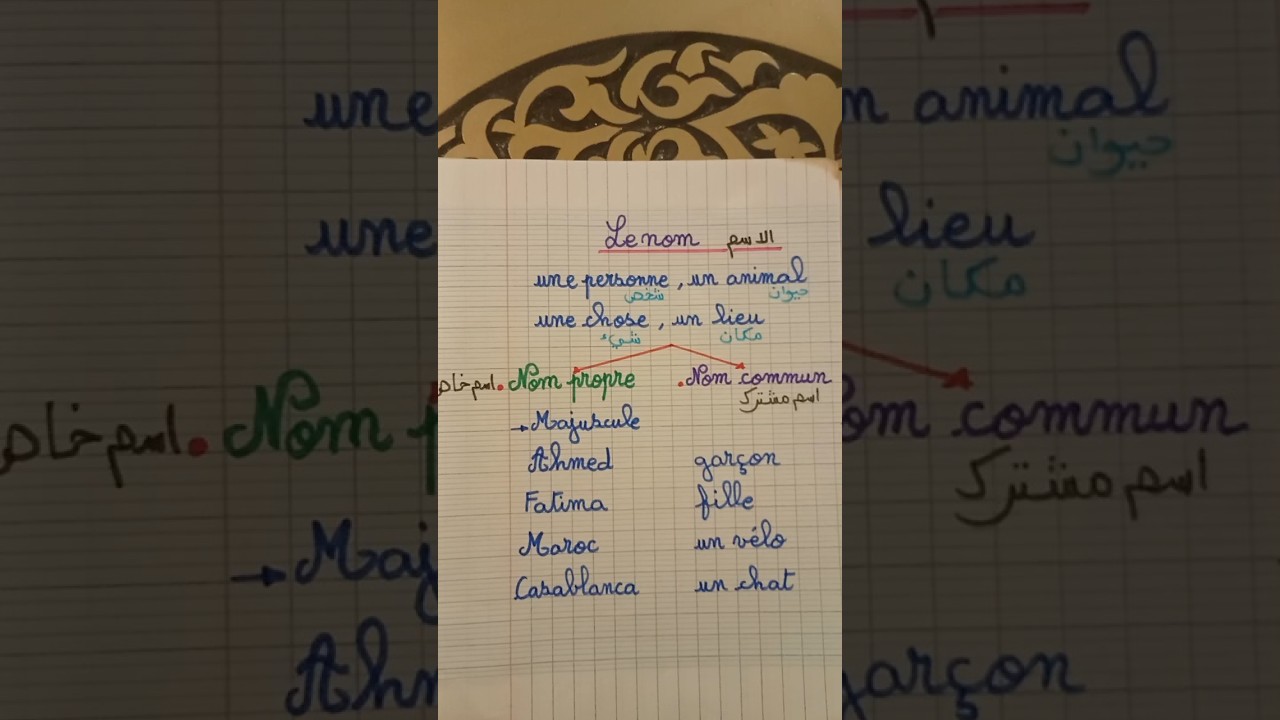 Le nom الاسم
une personne, un animal
شخص حيوان
une chose, un lieu
شيء مكان
اسم خاص • Nom propre • Nom commun
اسم مشترك
→ Majuscule
Ahmed garçon
Fatima fille
Maroc un vélo
Casablanca un chat